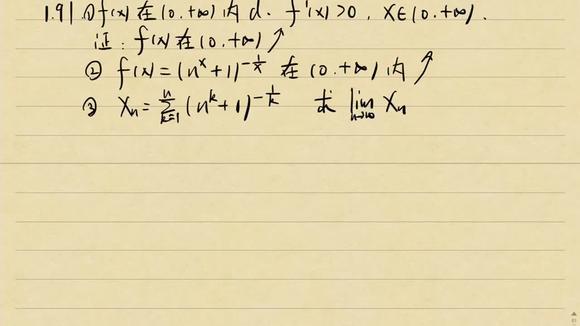 1.91 ① f(x) 在 (0.+∞) 内 d. f'(x)>0, x∈(0.+∞).
证: f(x) 在 (0.+∞) ↗
② f(x)=(n^x+1)^{-1/x} 在 (0.+∞) 内 ↗
③ X_n=∑_{k=1}^{n}(n^k+1)^{-1/k} 求 lim_{n→∞} X_n